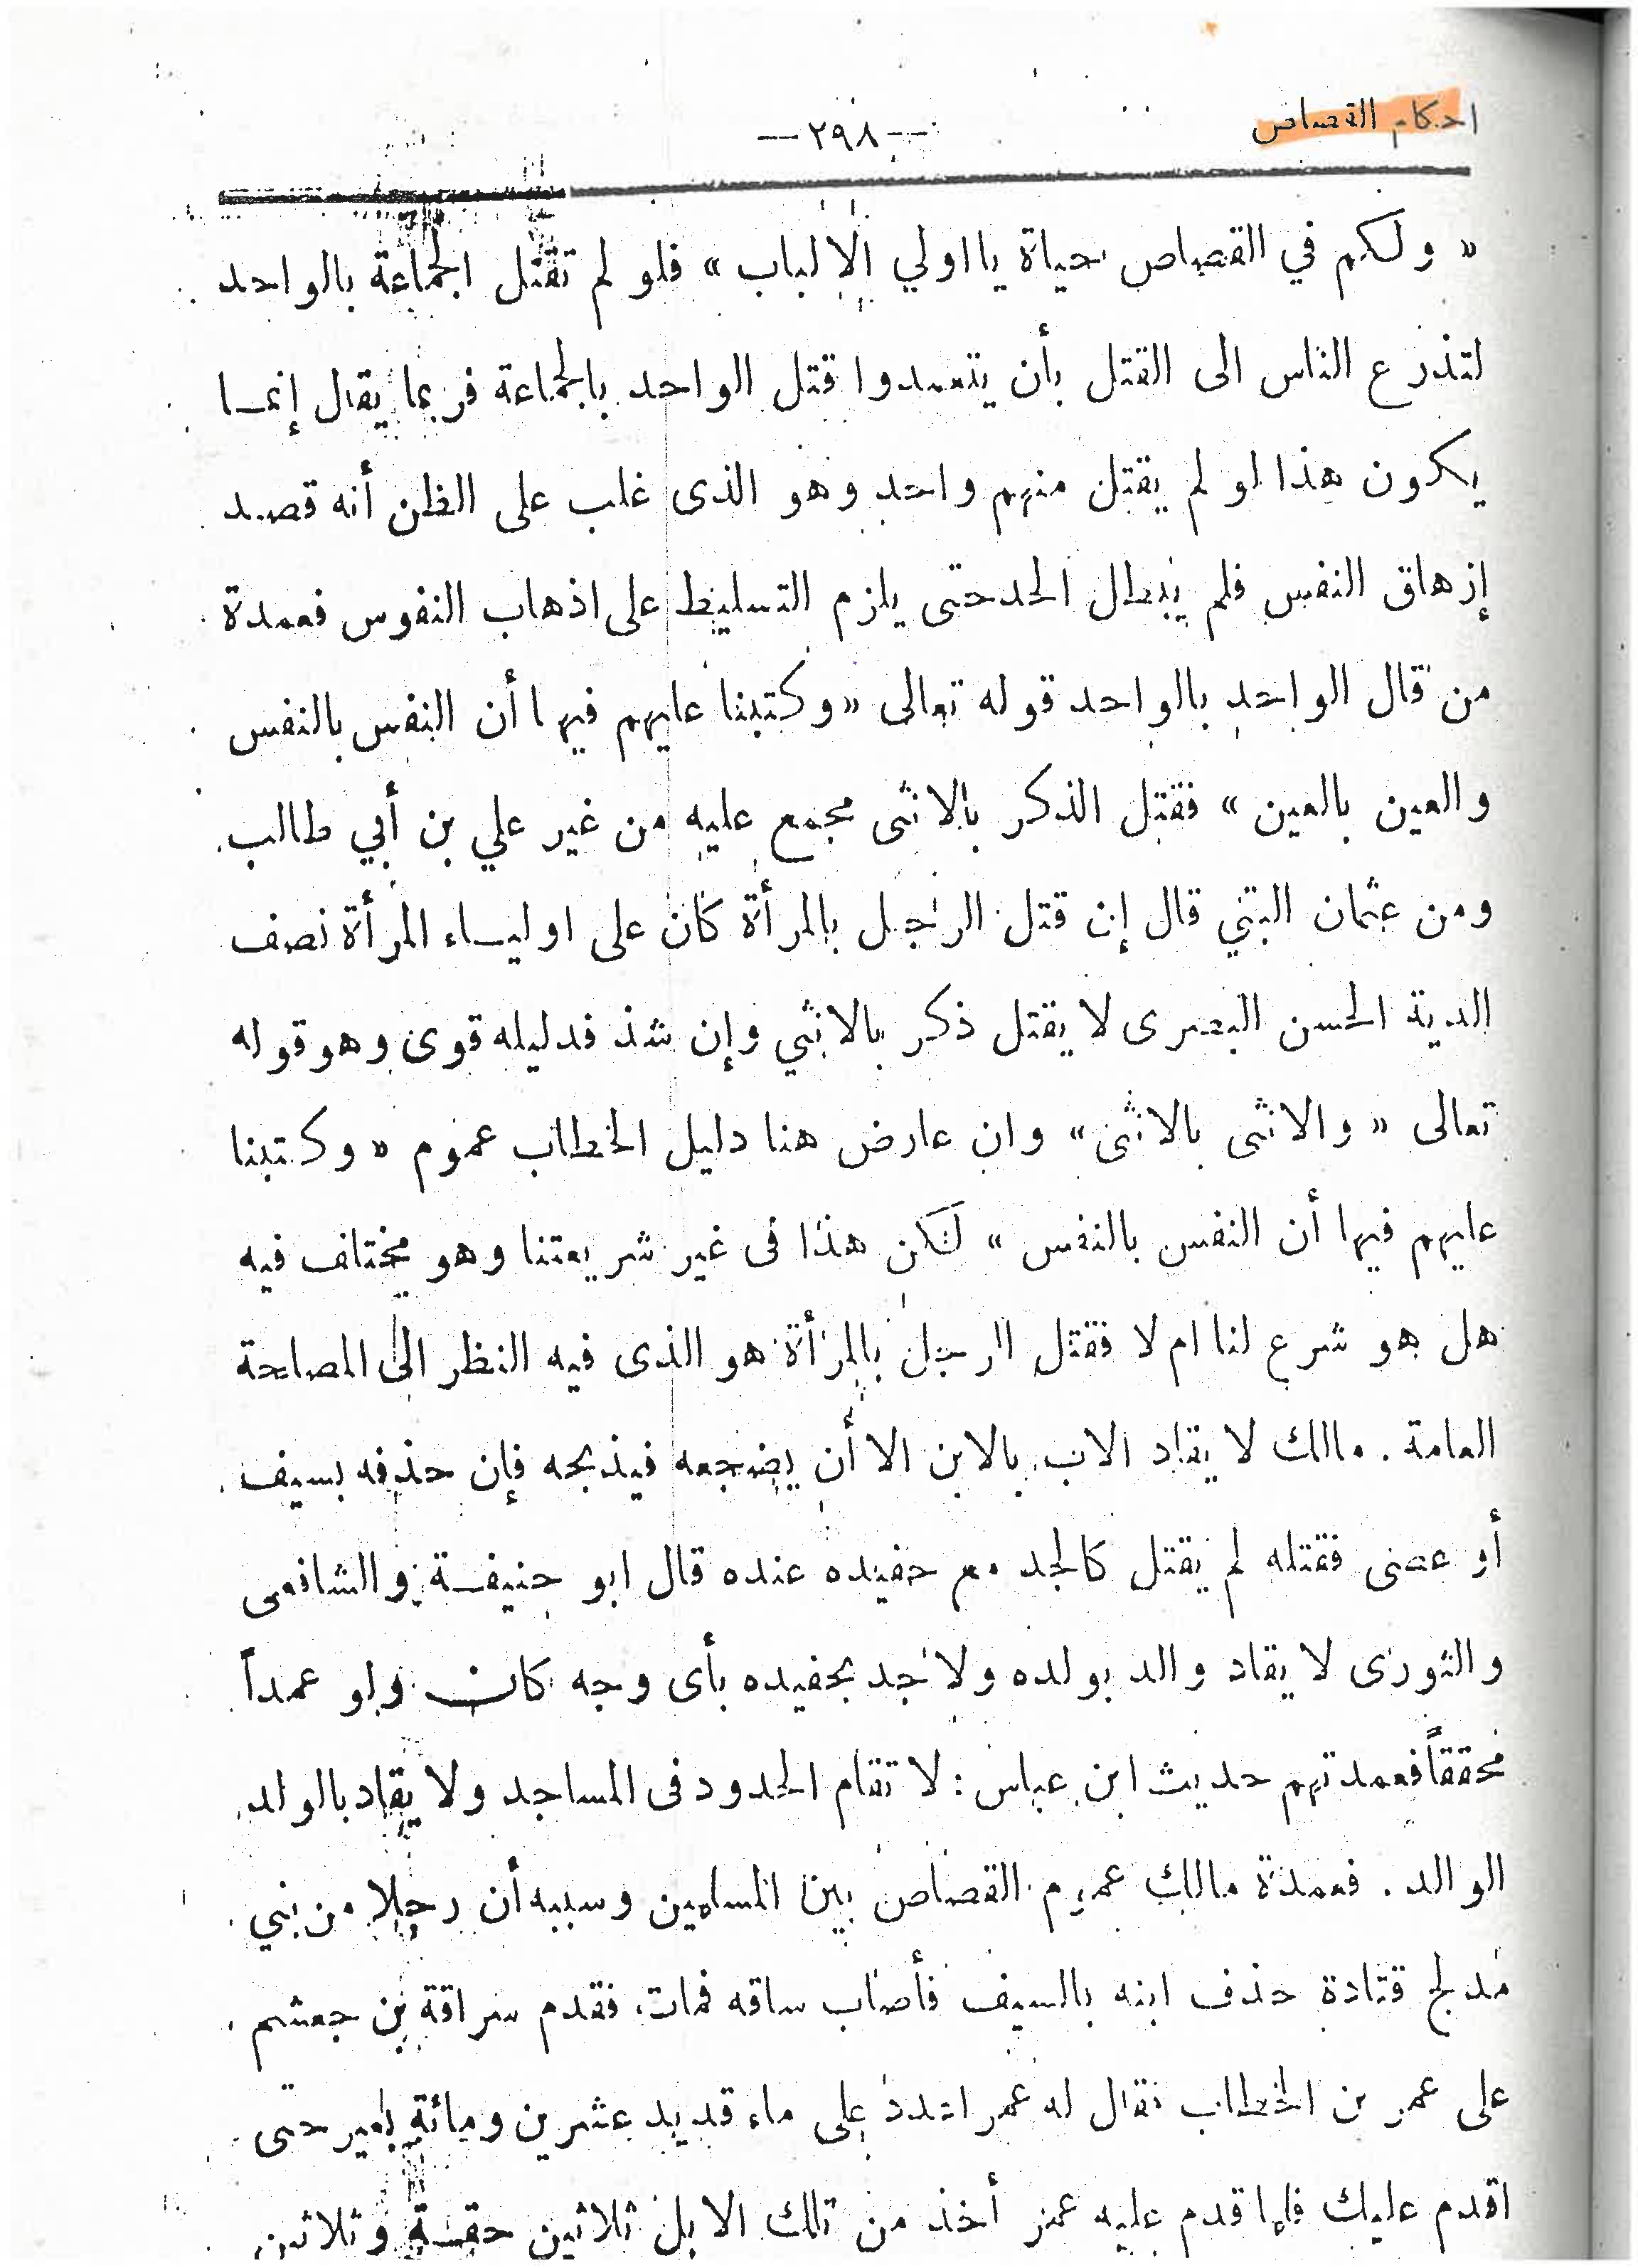 احكام القصاص
— ٢٩٨ —
« ولكم في القصاص حياة يا اولي الالباب » فلو لم تقتل الجماعة بالواحد
لتذرع الناس الى القتل بأن يتعمدوا قتل الواحد بالجماعة فربما يقال إنما
يكون هذا لو لم يقتل منهم واحد وهو الذى غلب على الظن أنه قصد
إزهاق النفس فلم يبطل الحد حتى يلزم التسليط على اذهاب النفوس فعمدة
من قال الواحد بالواحد قوله تعالى « وكتبنا عليهم فيها أن النفس بالنفس
والعين بالعين » فقتل الذكر بالانثى مجمع عليه من غير علي بن أبي طالب
ومن عثمان البتي قال إن قتل الرجل بالمرأة كان على اولياء المرأة نصف
الدية الحسن البصرى لا يقتل ذكر بالانثي وإن شذ فدليله قوى وهو قوله
تعالى « والانثى بالانثى » وان عارض هنا دليل الخطاب عموم « وكتبنا
عليهم فيها أن النفس بالنفس » لكن هذا فى غير شريعتنا وهو مختلف فيه
هل هو شرع لنا ام لا فقتل الرجل بالمرأة هو الذى فيه النظر الى المصلحة
العامة . مالك لا يقاد الاب بالابن الا أن يضجعه فيذبحه فإن حذفه بسيف
أو عصى فقتله لم يقتل كالجد مع حفيده عنده قال ابو حنيفة والشافعى
والثورى لا يقاد والد بولده ولا جد بحفيده بأى وجه كان ولو عمداً
محققاً فعمدتهم حديث ابن عباس : لا تقام الحدود فى المساجد ولا يقاد بالولد
الوالد . فعمدة مالك عموم القصاص بين المسلمين وسببه أن رجلا من بني
مدلج قتادة حذف ابنه بالسيف فأصاب ساقه فمات فقدم سراقة بن جعشم
على عمر بن الخطاب فقال له عمر اعدد على ماء قديد عشرين ومائة بعير حتى
اقدم عليك فلما قدم عليه عمر أخذ من تلك الابل ثلاثين حقة وثلاثين